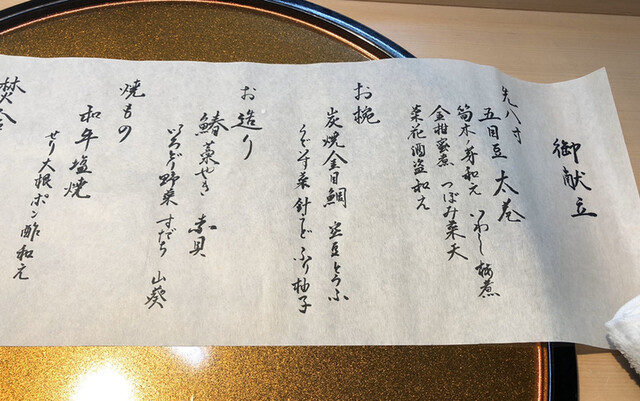 御献立
先八寸
五目豆 太巻
筍木ノ芽和え いわし梅煮
金柑蜜煮 つぼみ菜天
菜花酒盗和え
お椀
炭焼金目鯛 空豆とうふ
うぐいす菜 針うど ふり柚子
お造り
鰆藁やき 赤貝
いろどり野菜 すだち 山葵
焼もの
和牛塩焼
せり大根ポン酢和え
焚合